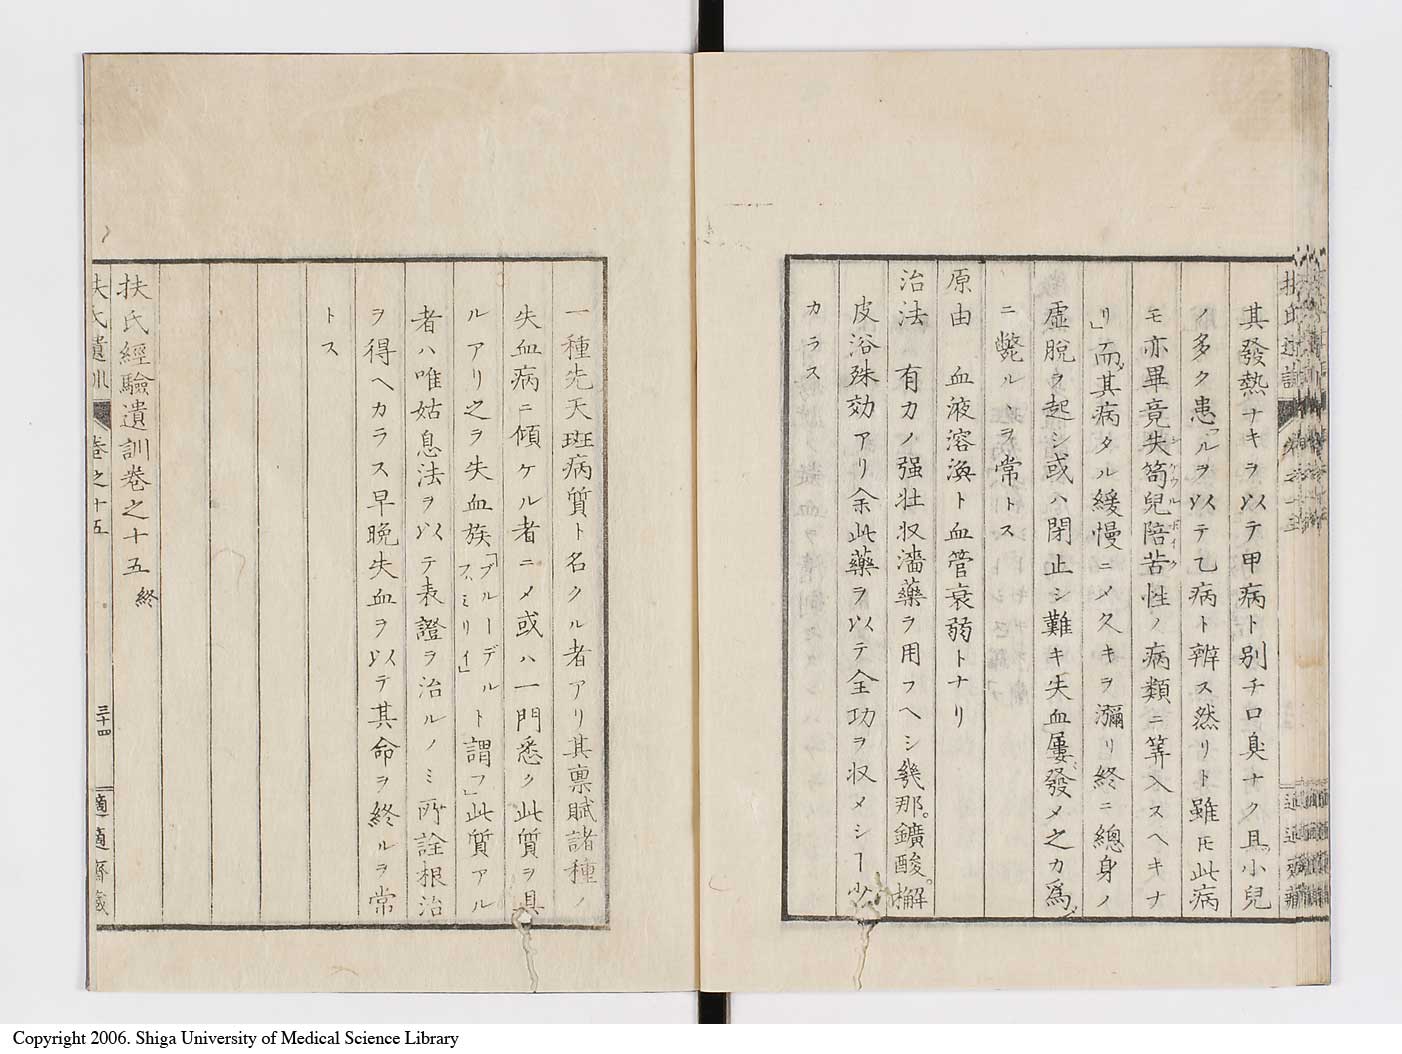 其發熱ナキヲ以テ甲病ト別チ口臭ナク且小兒
ノ多ク患ルヲ以テ乙病ト辨ス然リト雖𪜈此病
モ亦畢竟失苟兒陪苦性ノ病類ニ算入スヘキナ
リ」而其病タル緩慢ニメ久キヲ瀰リ終ニ總身ノ
虚脱ヲ起シ或ハ閉止シ難キ失血屢發メ之カ爲
ニ斃ルヽヲ常トス
原由 血液溶渙ト血管衰弱トナリ
治法 有力ノ强壯収濇藥ヲ用フヘシ幾那。鑛酸。檞
皮浴殊効アリ余此藥ヲ以テ全功ヲ収メシヿ少
カラス
一種先天斑病質ト名クル者アリ其禀賦諸種ノ
失血病ニ傾ケル者ニメ或ハ一門悉ク此質ヲ具
ルアリ之ヲ失血族「ブルーデルフ、ミリイ」ト謂フ」此質アル
者ハ唯姑息法ヲ以テ表證ヲ治ルノミ所詮根治
ヲ得ヘカラス早晩失血ヲ以テ其命ヲ終ルヲ常
トス
扶氏經驗遺訓卷之十五 終
扶氏遺訓 卷之十五 三十四 適適齋藏
Copyright 2006. Shiga University of Medical Science Library